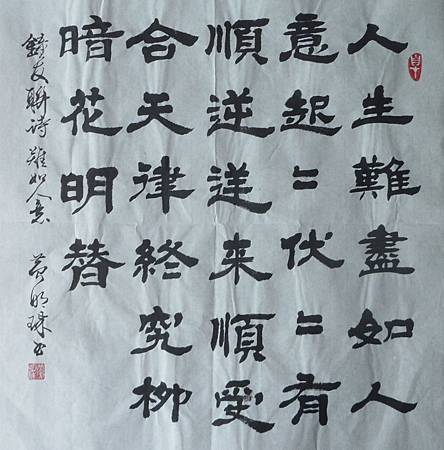 人生難盡如人
意起〻伏〻有
順逆逆来順受
合天律終究柳
暗花明替
錄友聯诗難如人意
黄明珠書